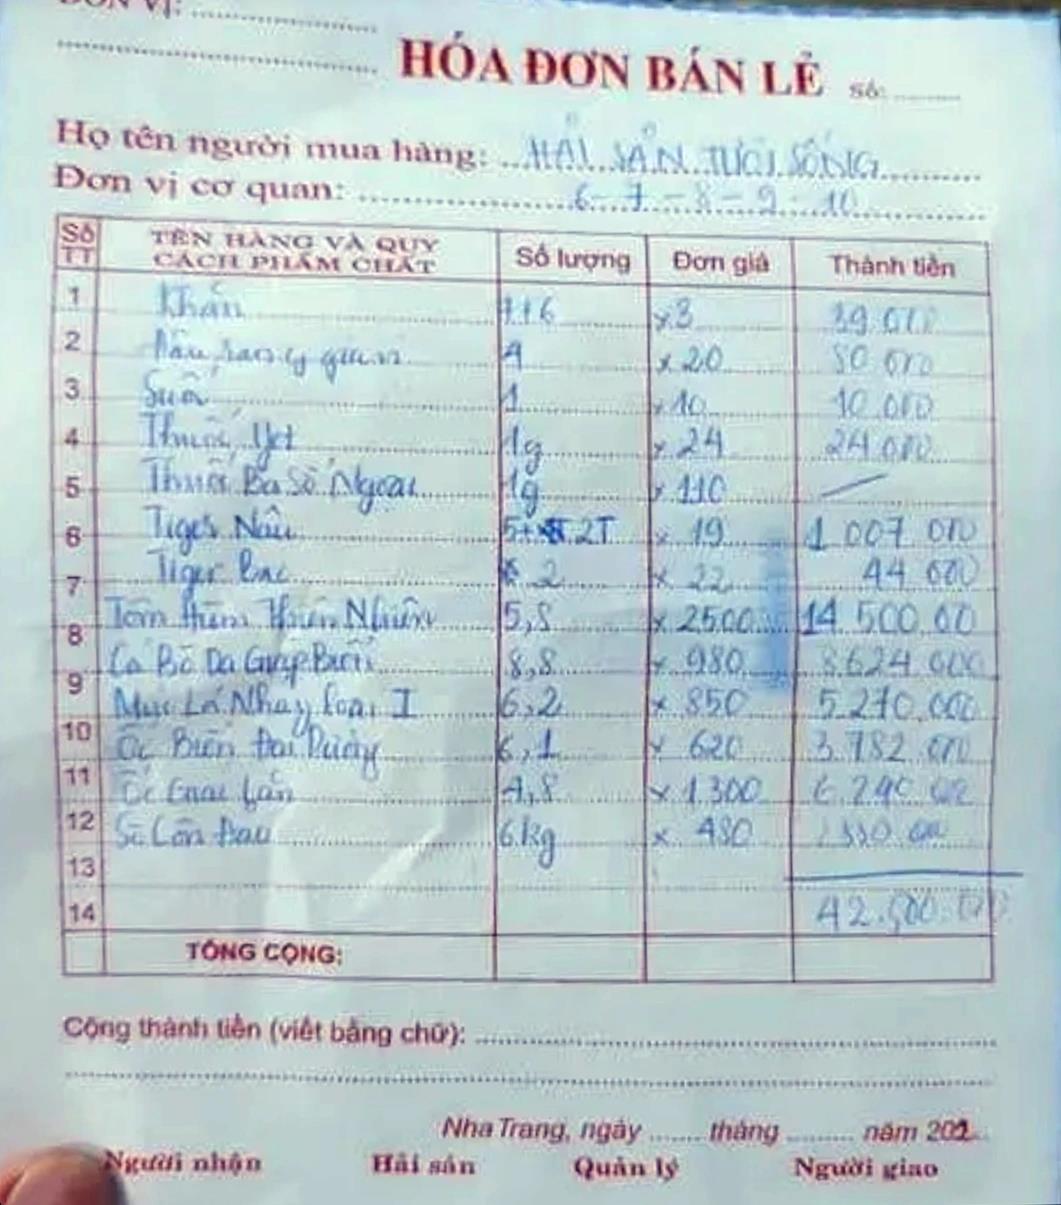 ĐƠN VỊ:
HÓA ĐƠN BÁN LẺ Số:
Họ tên người mua hàng: HẢI SẢN TƯƠI SỐNG
Đơn vị cơ quan: 6-7-8-9-10
Số TT TÊN HÀNG VÀ QUY CÁCH PHẨM CHẤT Số lượng Đơn giá Thành tiền
1 Khăn 7+6 x3 39.000
2 4 x20 80 000
3 Suối 1 x10 10.000
4 Thuốc 1g x24 24.000
5 Thuốc Ba Số Ngoại 1g x110 —
6 Tiger Nâu 5+ 2T x 19 1 007 000
7 Tiger Bạc 2 x 22 44 000
8 Tôm Hùm Thiên Nhiên 5,8 x 2500 14 500.00
9 Cá Bò Da Giáp Biển 8,8 x 980 8.624 000
10 Mực Lá Nhảy Loại I 6,2 x 850 5.270.000
11 Ốc Biển Đại Dương 6,1 x 620 3.782 000
12 Ốc Gai Lớn 4,8 x 1.300 6.240
13 Sò Lông 6kg x 480
14 42.500.000
TỔNG CỘNG:
Cộng thành tiền (viết bằng chữ):
Nha Trang, ngày tháng năm 202
Người nhận Hải sản Quản lý Người giao